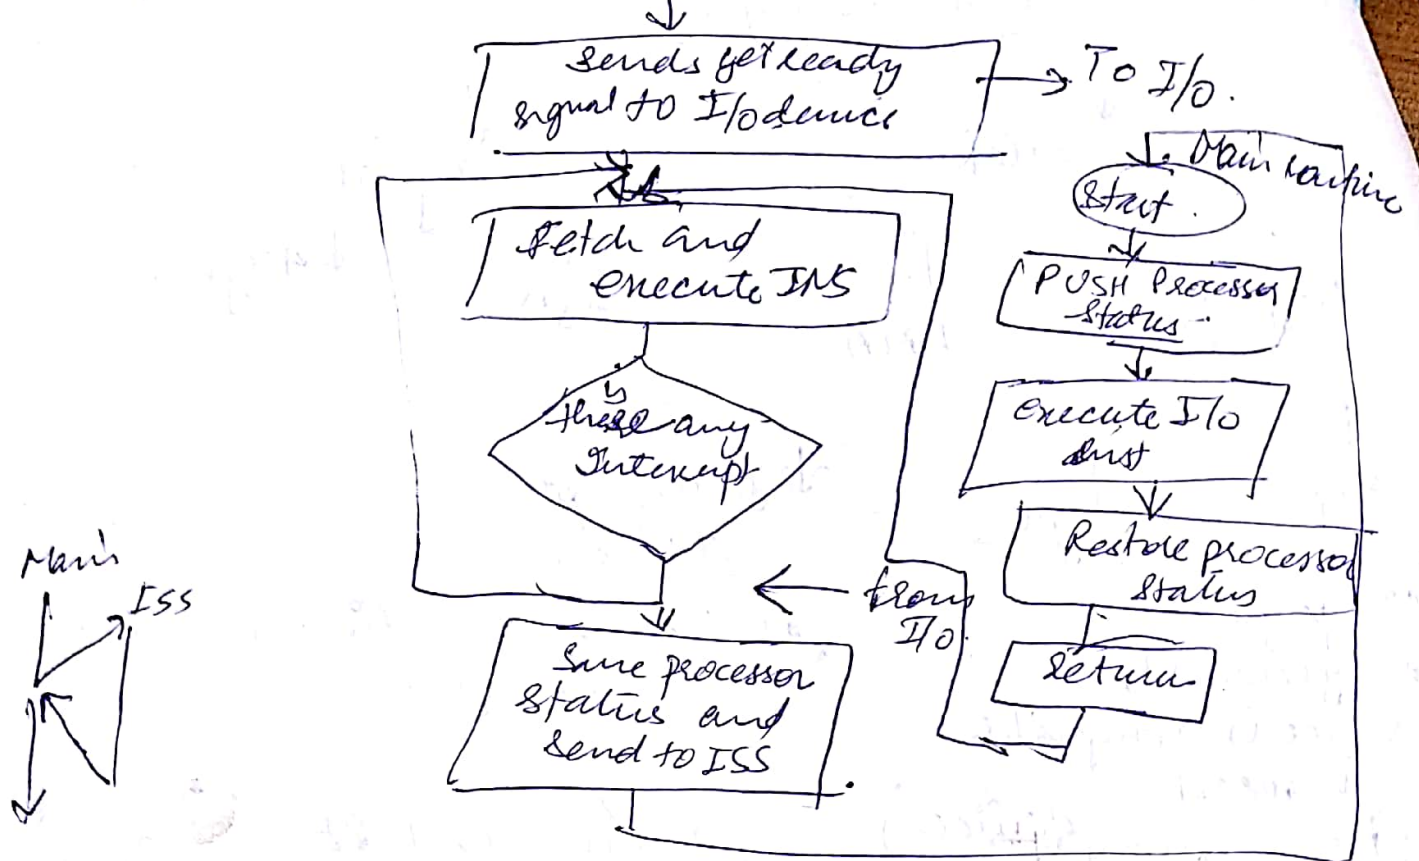 Sends get ready
signal to I/O device
To I/O.
Main routine
Start.
Fetch and
execute INS
PUSH Processor
Status.
is
there any
Interrupt
execute I/O
inst
Restore processor
status
from
I/O.
return
Save processor
status and
send to ISS
Main
ISS